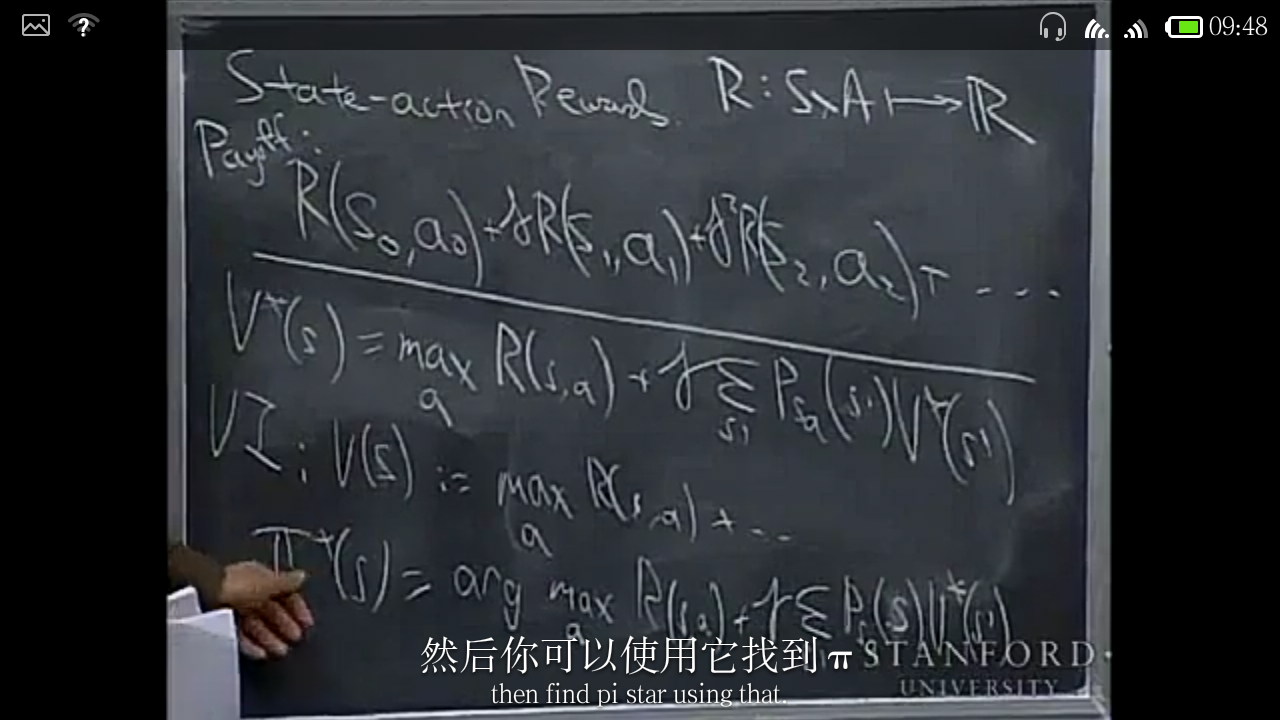 09:48
State-action Rewards. R : S×A ↦ ℝ
Payoff:
R(s₀,a₀)+γR(s₁,a₁)+γ²R(s₂,a₂)+ ....
V*(s) = max_a R(s,a) + γ Σ_s' P_sa(s')V*(s')
VI: V(s) := max_a R(s,a) + ...
π*(s) = arg max_a R(s,a) + γ Σ P_s(s)V*(s')
然后你可以使用它找到 π
then find pi star using that.
STANFORD
UNIVERSITY